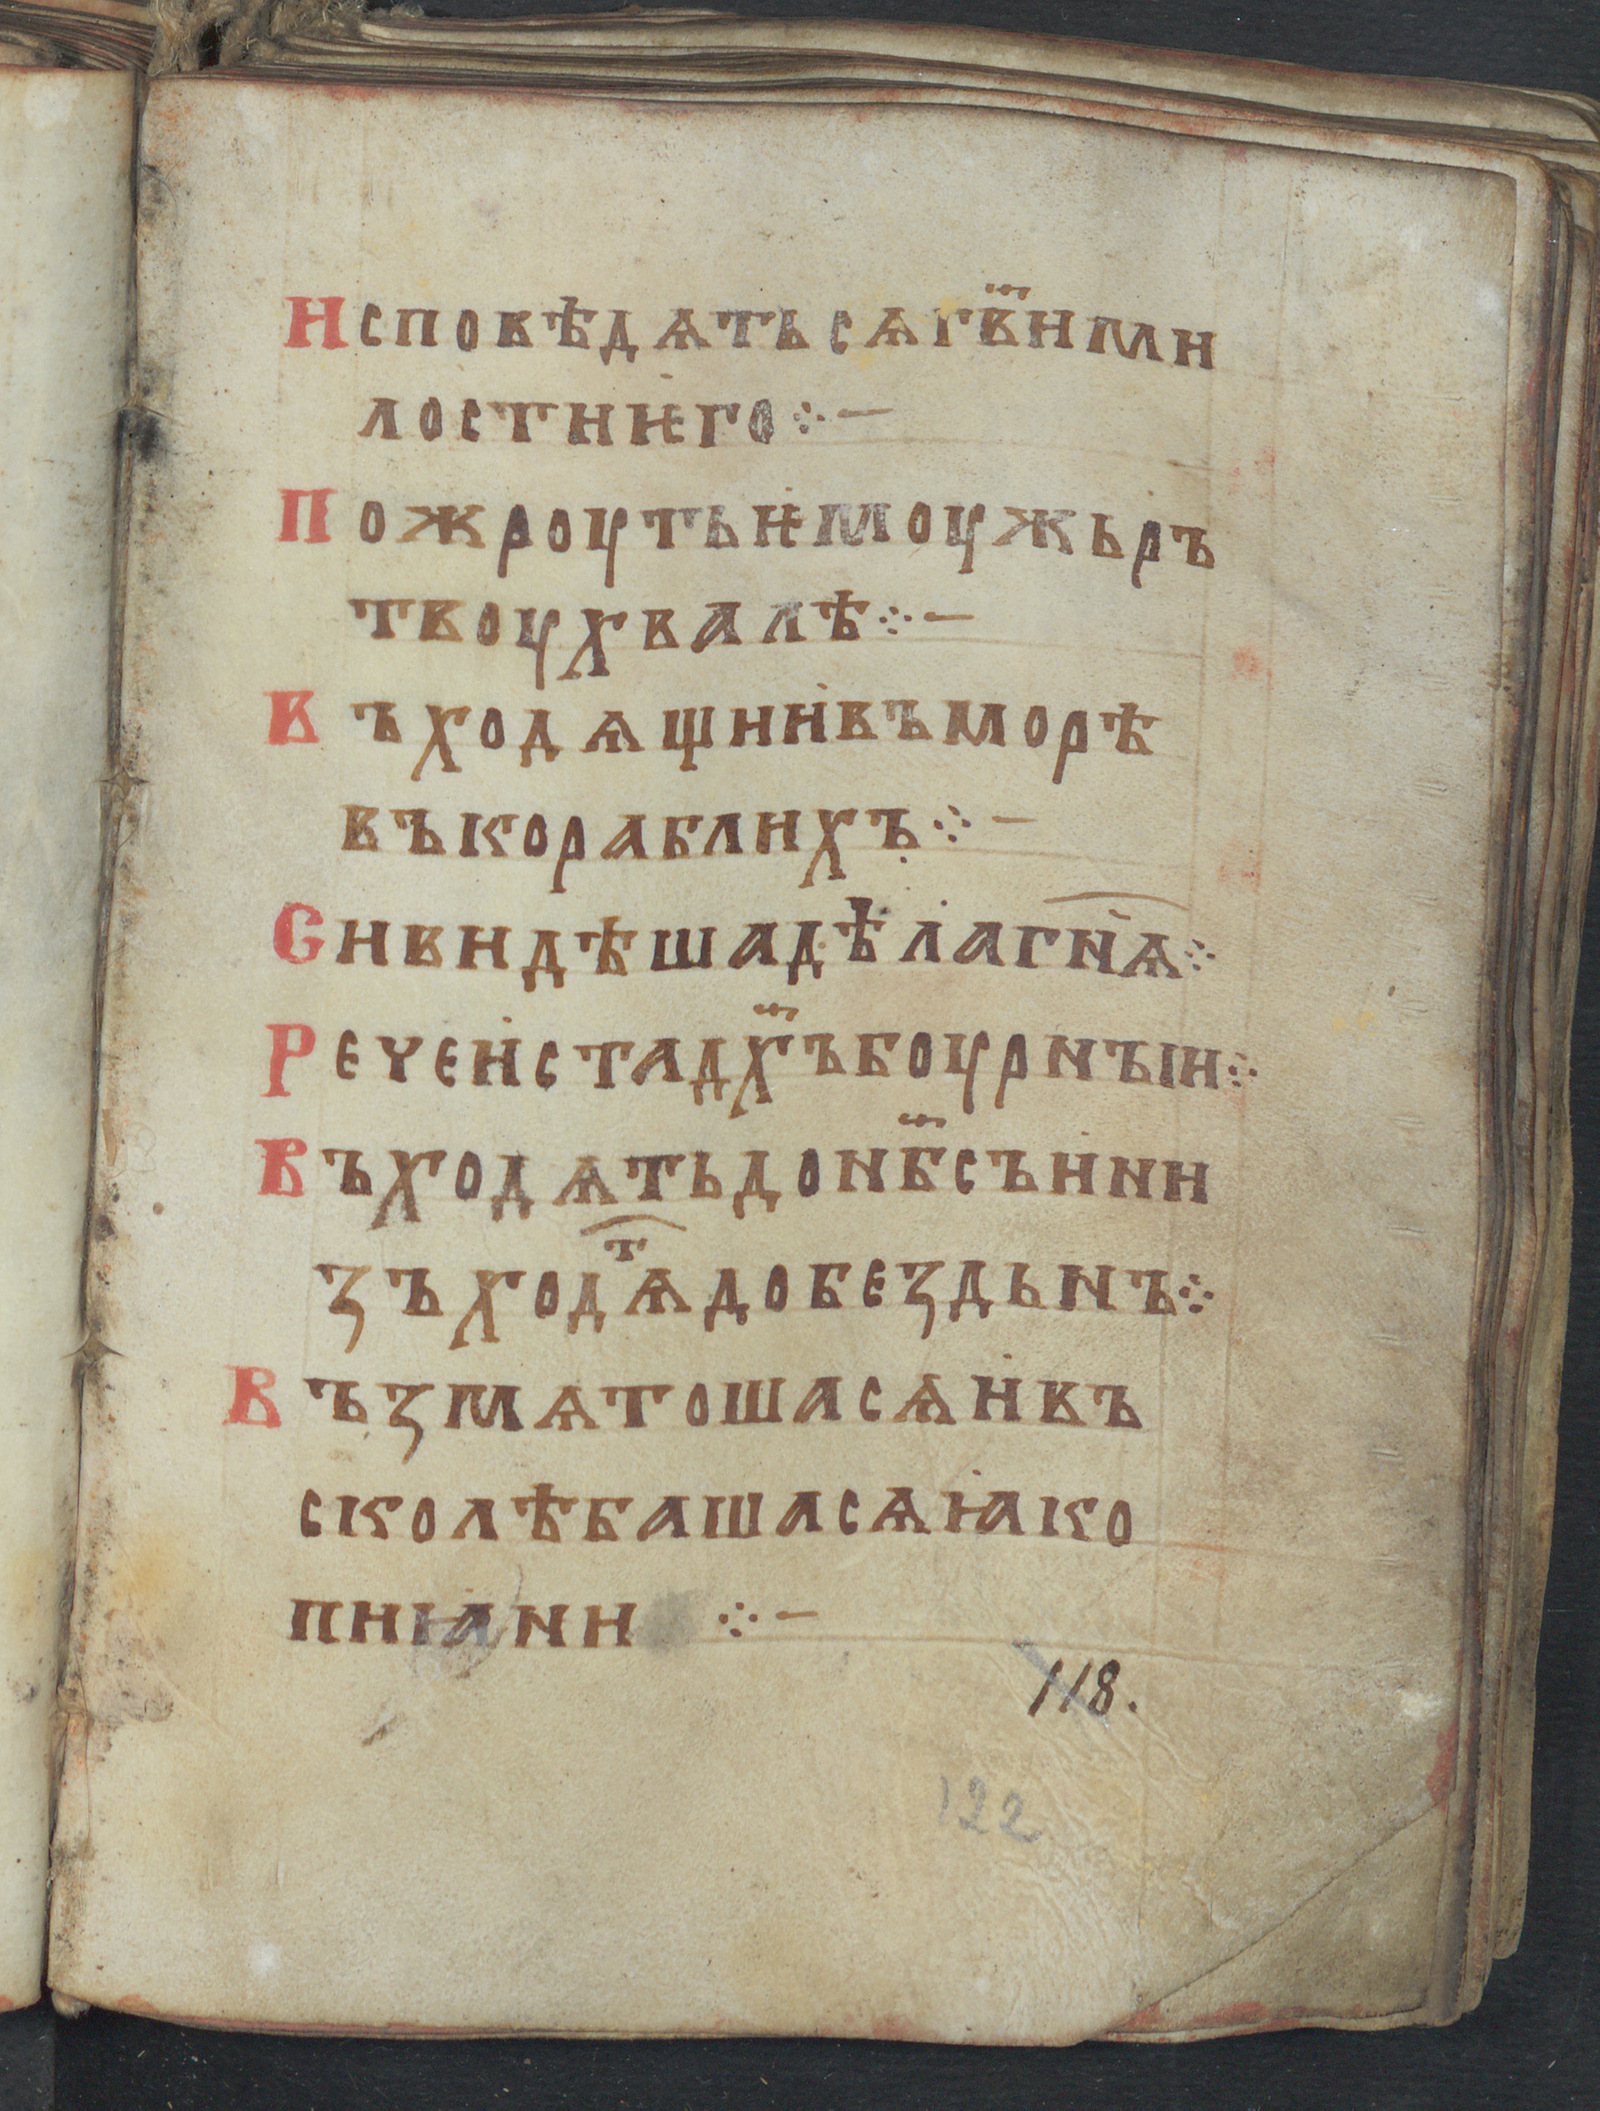 Исповѣдѧтьсѧгв҃ими
лостиѥго⁘—
Пожроутьѥмоужьръ
твоухвалѣ⁘—
Въходѧщиивъморѣ
въкораблихъ⁘—
Сивидѣшадѣлагн҃ѧ⁘
Речеистадх҃ъбоурнъıи⁘
Въходѧтьдонб҃съини
зъходѧⷮдобездьнъ⁘
Възмѧтошасѧивъ
сколѣбашасѧꙗко
пиꙗни ⁘—
118.
122